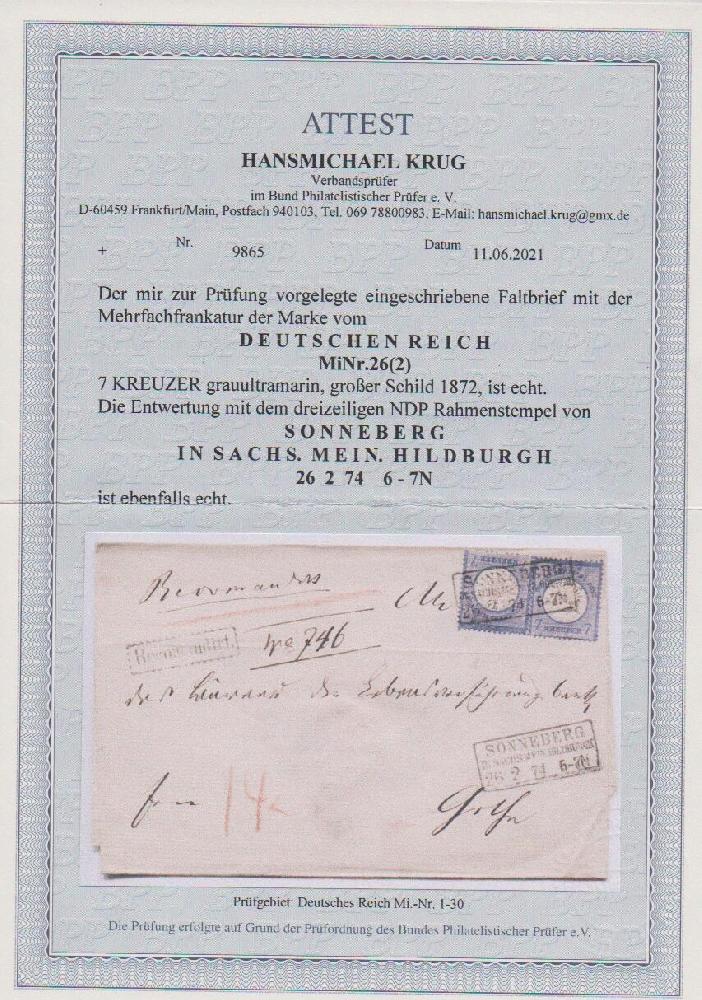 ATTEST
HANSMICHAEL KRUG
Verbandsprüfer
im Bund Philatelistischer Prüfer e. V.
D-60459 Frankfurt/Main, Postfach 940103, Tel. 069 78800983, E-Mail: hansmichael.krug@gmx.de
+ Nr. 9865 Datum 11.06.2021
Der mir zur Prüfung vorgelegte eingeschriebene Faltbrief mit der
Mehrfachfrankatur der Marke vom
DEUTSCHEN REICH
MiNr.26(2)
7 KREUZER grauultramarin, großer Schild 1872, ist echt.
Die Entwertung mit dem dreizeiligen NDP Rahmenstempel von
SONNEBERG
IN SACHS. MEIN. HILDBURGH
26 2 74 6 - 7N
ist ebenfalls echt.
7 KREUZER
SONNEBERG
26 2 74 6-7N
7 KREUZER 7
Recommandirt.
No 746
SONNEBERG
26 2 74 6-7N
14
Gotha
Prüfgebiet Deutsches Reich Mi.-Nr. 1-30
Die Prüfung erfolgte auf Grund der Prüfordnung des Bundes Philatelistischer Prüfer e.V.